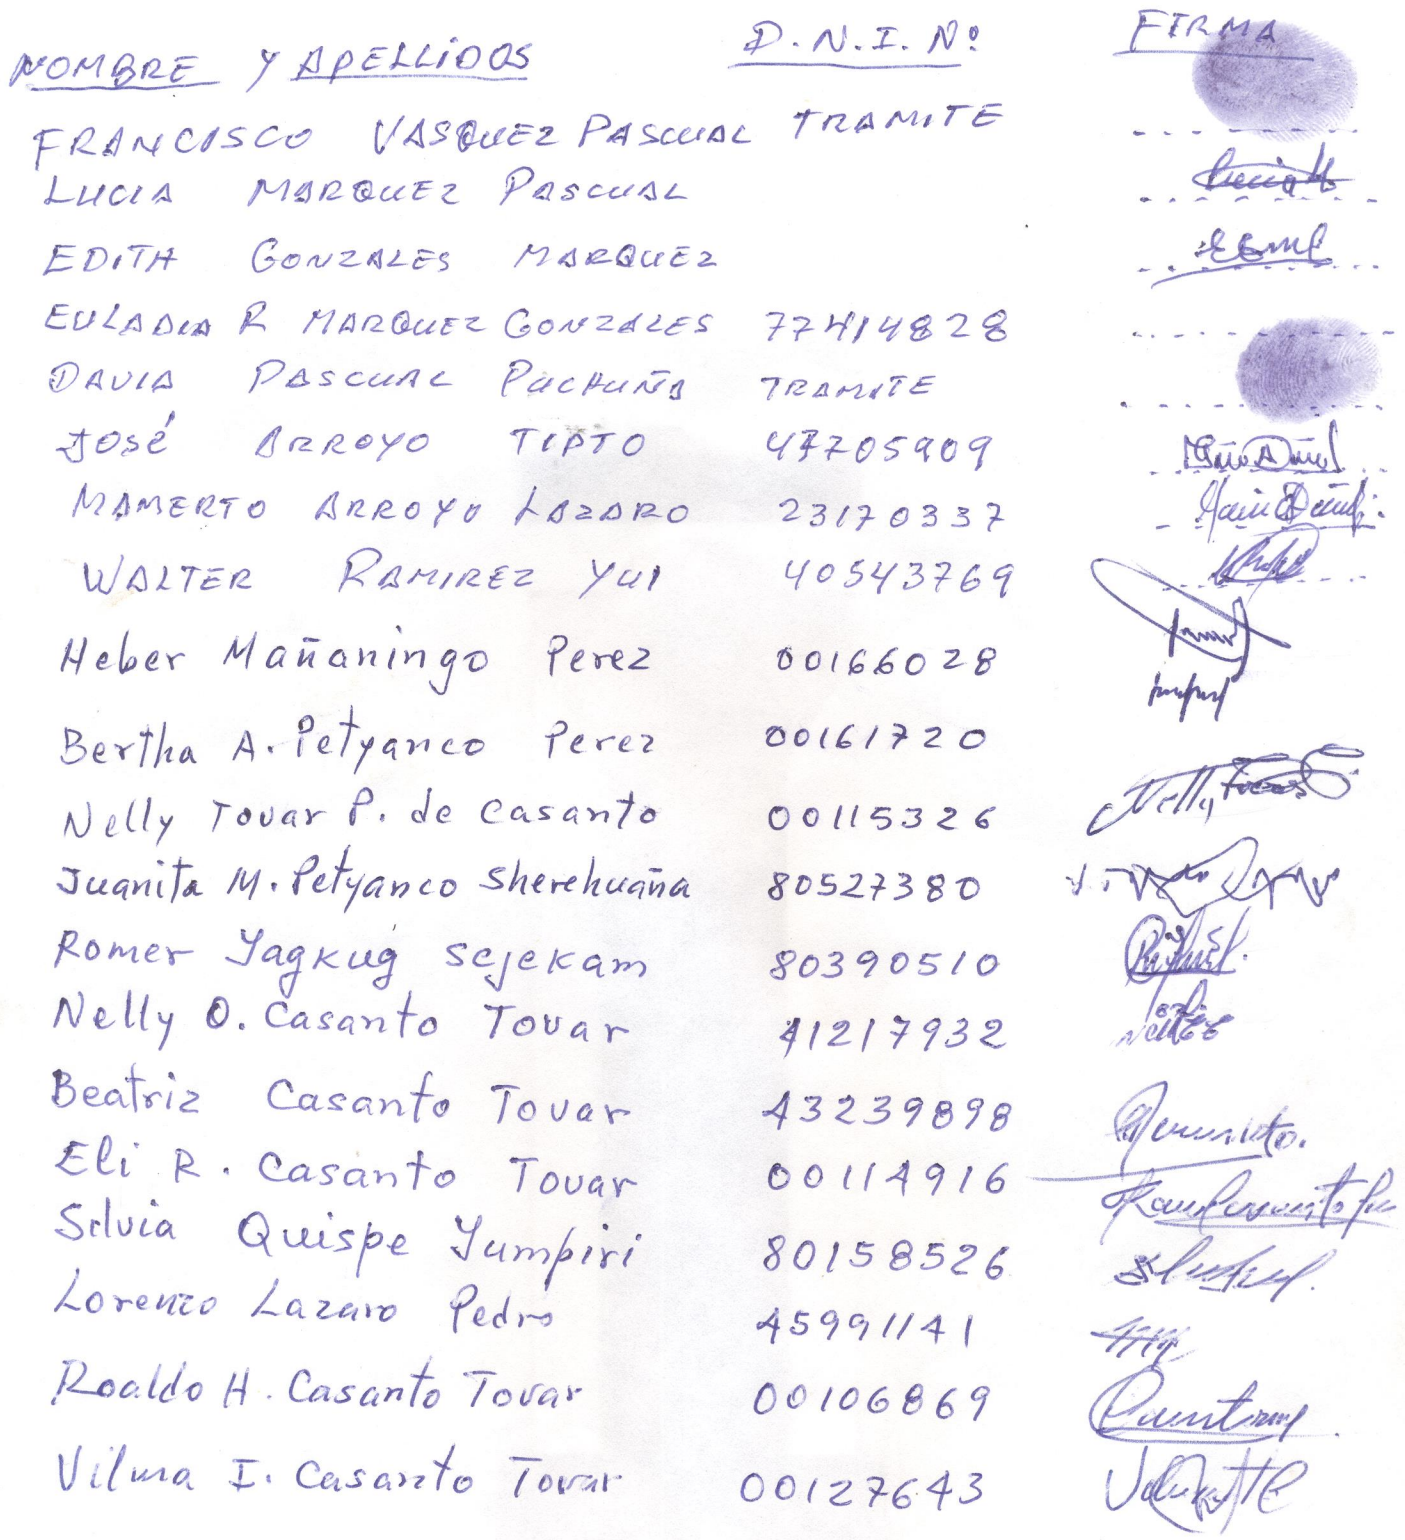 NOMBRE Y APELLIDOS D.N.I. Nº FIRMA
FRANCISCO VASQUEZ PASCUAL TRAMITE
LUCIA MARQUEZ PASCUAL
EDITH GONZALES MARQUEZ
EULADIA R MARQUEZ GONZALES 77414828
DAVIA PASCUAL PUCHUÑA TRAMITE
JOSÉ ARROYO TIPTO 47705909
MAMERTO ARROYO LAZARO 23170337
WALTER RAMIREZ YUI 40543769
Heber Mañaningo Perez 00166028
Bertha A. Petyanco Perez 00161720
Nelly Tovar P. de Casanto 00115326 Nelly
Juanita M. Petyanco Sherehuaña 80527380
Romer Yagkug Sejekam 80390510
Nelly O. Casanto Tovar 41217932
Beatriz Casanto Tovar 43239898
Eli R. Casanto Tovar 00114916
Silvia Quispe Yumpiri 80158526
Lorenzo Lazaro Pedro 45991141
Roaldo H. Casanto Tovar 00106869
Vilma I. Casanto Tovar 00127643